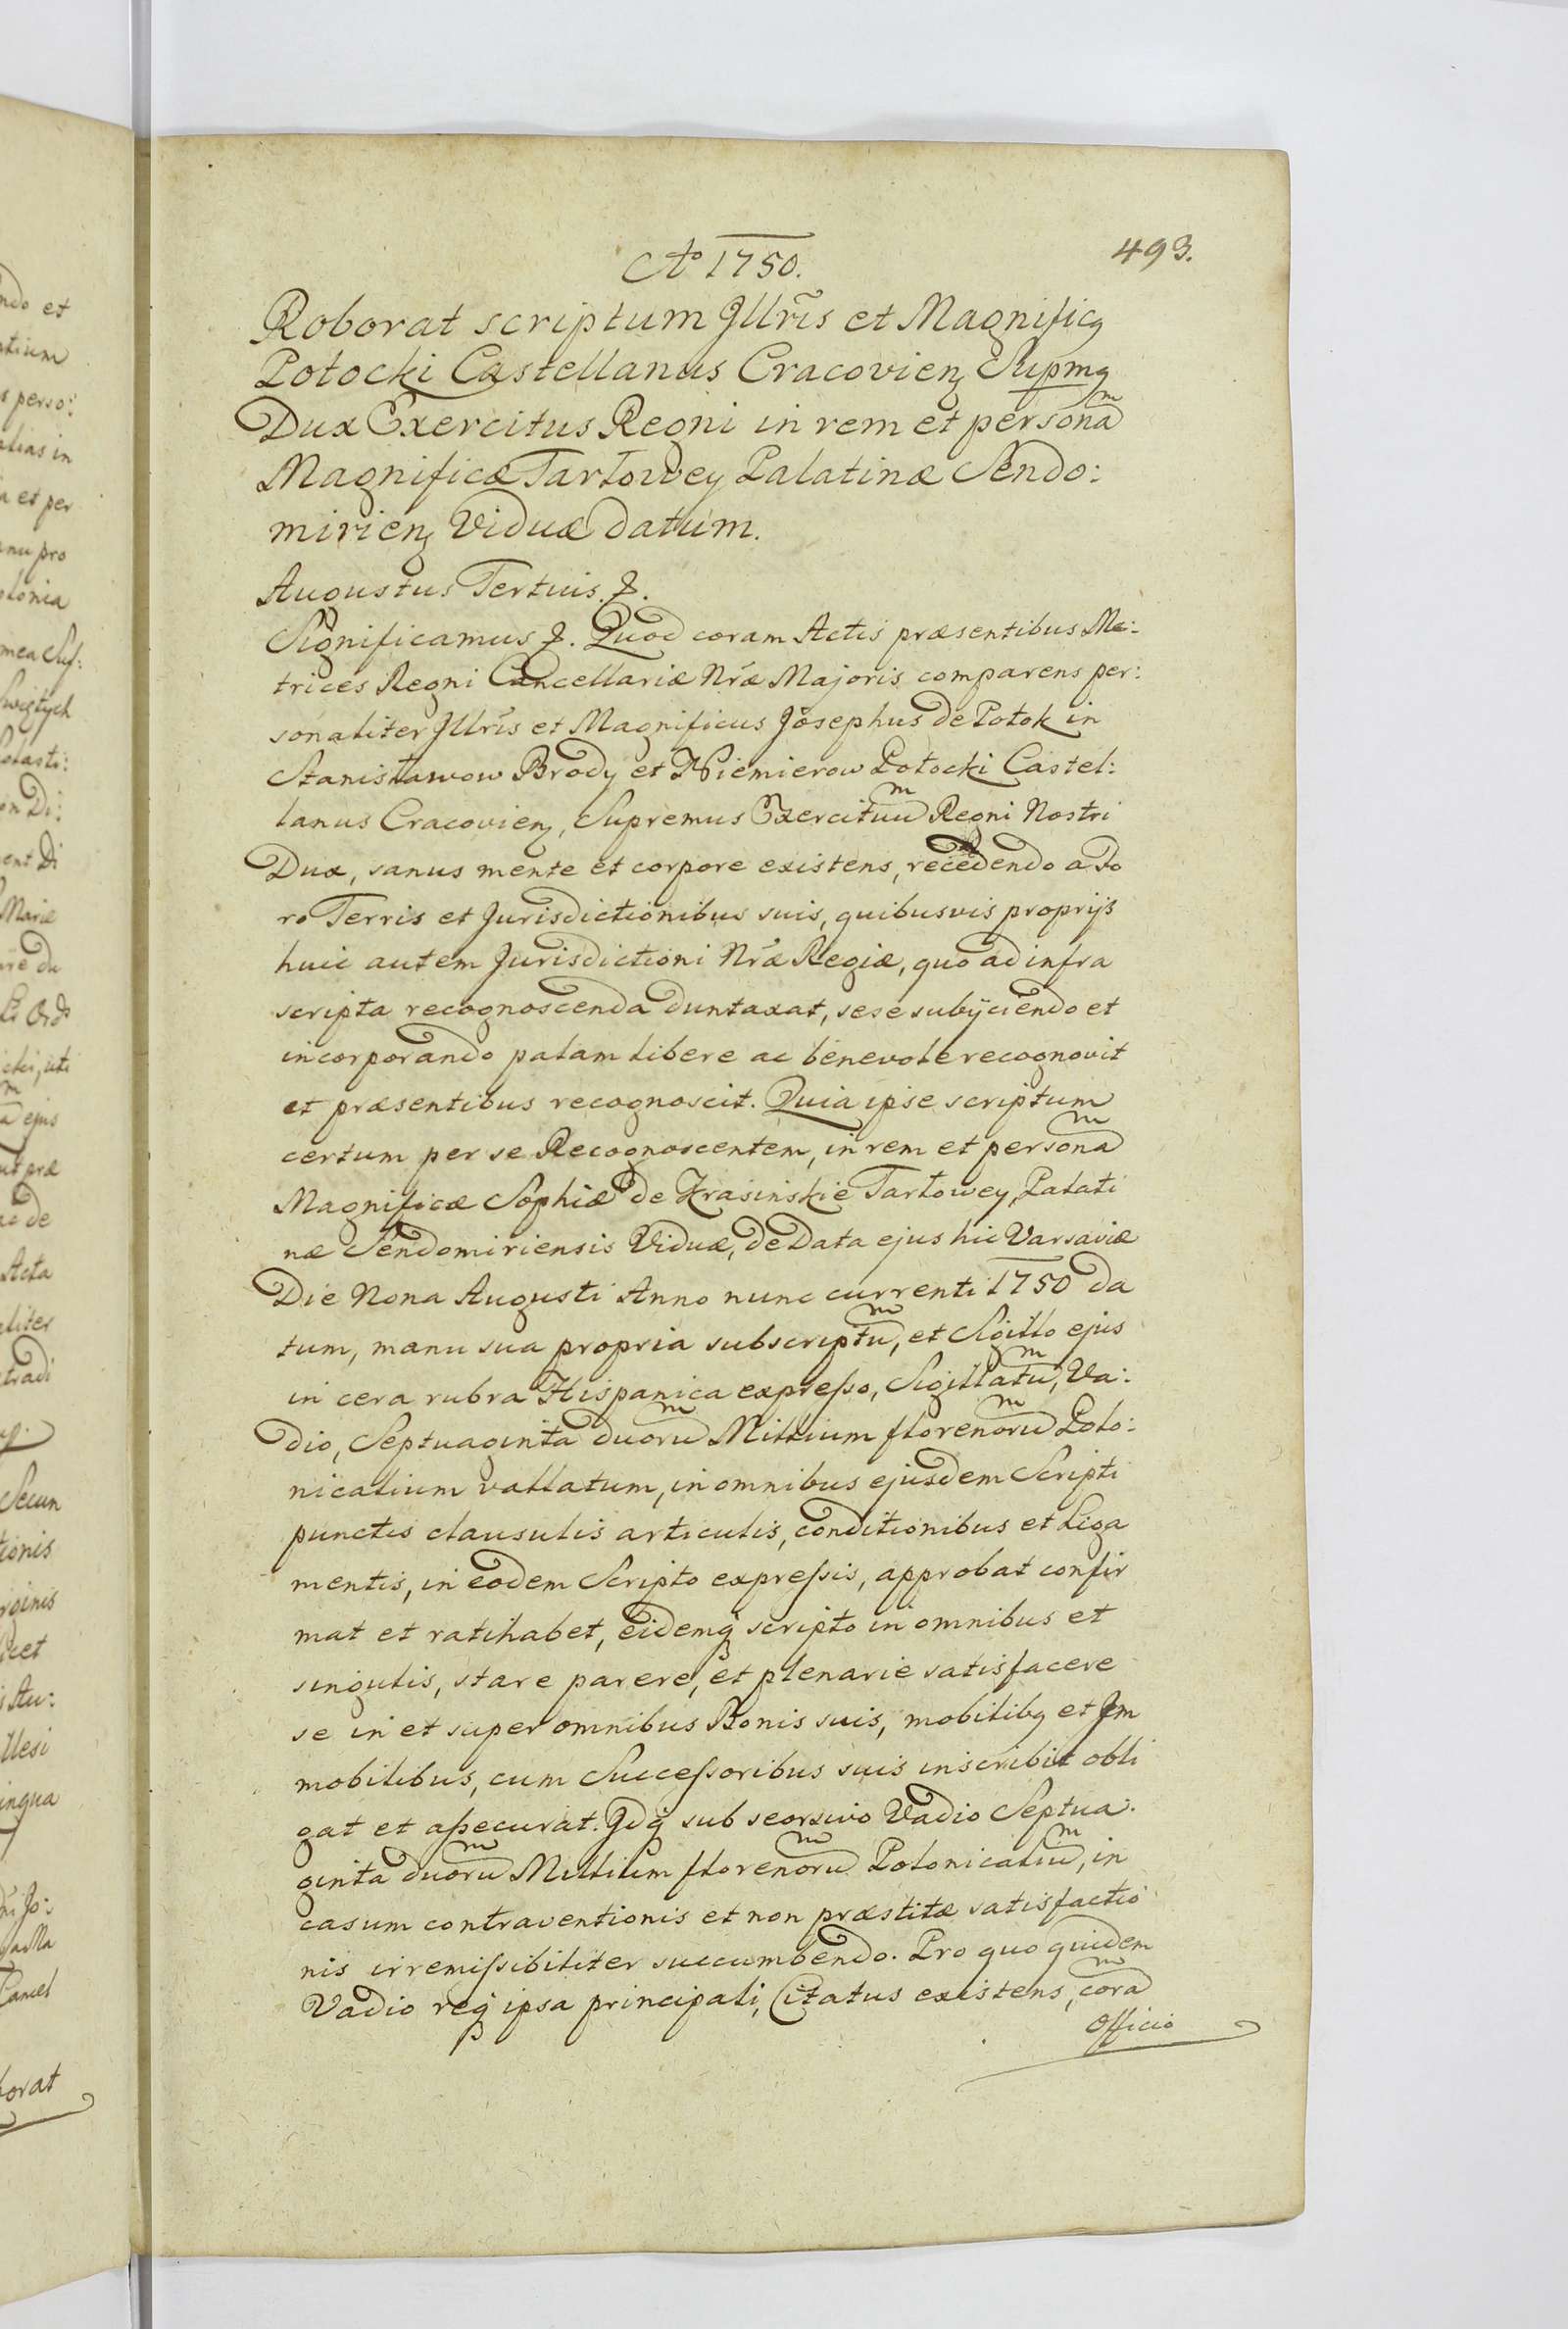 Ao 1750.
493.
Roborat scriptum Jllris et Magnificq
Potocki Castellanus Cracovienz Supmq
Dux Exercitus Regni in rem et personam
Magnificæ Tarłowey Palatinæ Sendo:
mirienz Viduæ datum.
Augustus Tertius. &.
Significamus &. Quod coram Actis præsentibus Me:
trices Regni Cancellariæ Nræ Majoris comparens per:
sonaliter Jllris et Magnificus Josephus de Potok in
Stanisławow Brody et Niemierow Potocki Castel:
lanus Cracovienz, Supremus Exercituum Regni Nostri
Dux, sanus mente et corpore existens, recedendo a Fo
ro Terris et Jurisdictionibus suis, quibusvis proprijs
huic autem Jurisdictioni Nræ Regiæ, quo ad infra
scripta recognoscenda duntaxat, sese subijciendo et
incorporando palam libere ac benevole recognovit
et præsentibus recognoscit. Quia ipse scriptum
certum per se Recognoscentem, in rem et personam
Magnificæ Sophiæ de Krasinskie Tarłowey, Palati
næ Sendomiriensis Viduæ, de Data ejus hic Varsaviæ
Die Nona Augusti Anno nunc currenti 1750 da
tum, manu sua propria subscriptum, et Sigillo ejus
in cera rubra Hispanica expresso, Sigillatum, Va:
dio, Septuaginta duorum Millium florenorum Polo:
nicalium vallatum, in omnibus ejusdem Scripti
punctis clausulis articulis, conditionibus et Liga
mentis, in eodem Scripto expressis, approbat confir
mat et ratihabet, eidemq scripto in omnibus et
singulis, stare parere, et plenarie satisfacere
se in et super omnibus Bonis suis, mobilibq et Jm
mobilibus, cum Successoribus suis inscribit obli
gat et assecurat. Jdq sub seorsivo Vadio Septua:
ginta duorum Millium florenorum Polonicalium, in
casum contraventionis et non præstitæ satisfactio
nis irremissibiliter succumbendo. Pro quo quidem
Vadio req ipsa principali, Citatus existens, coram
Officio